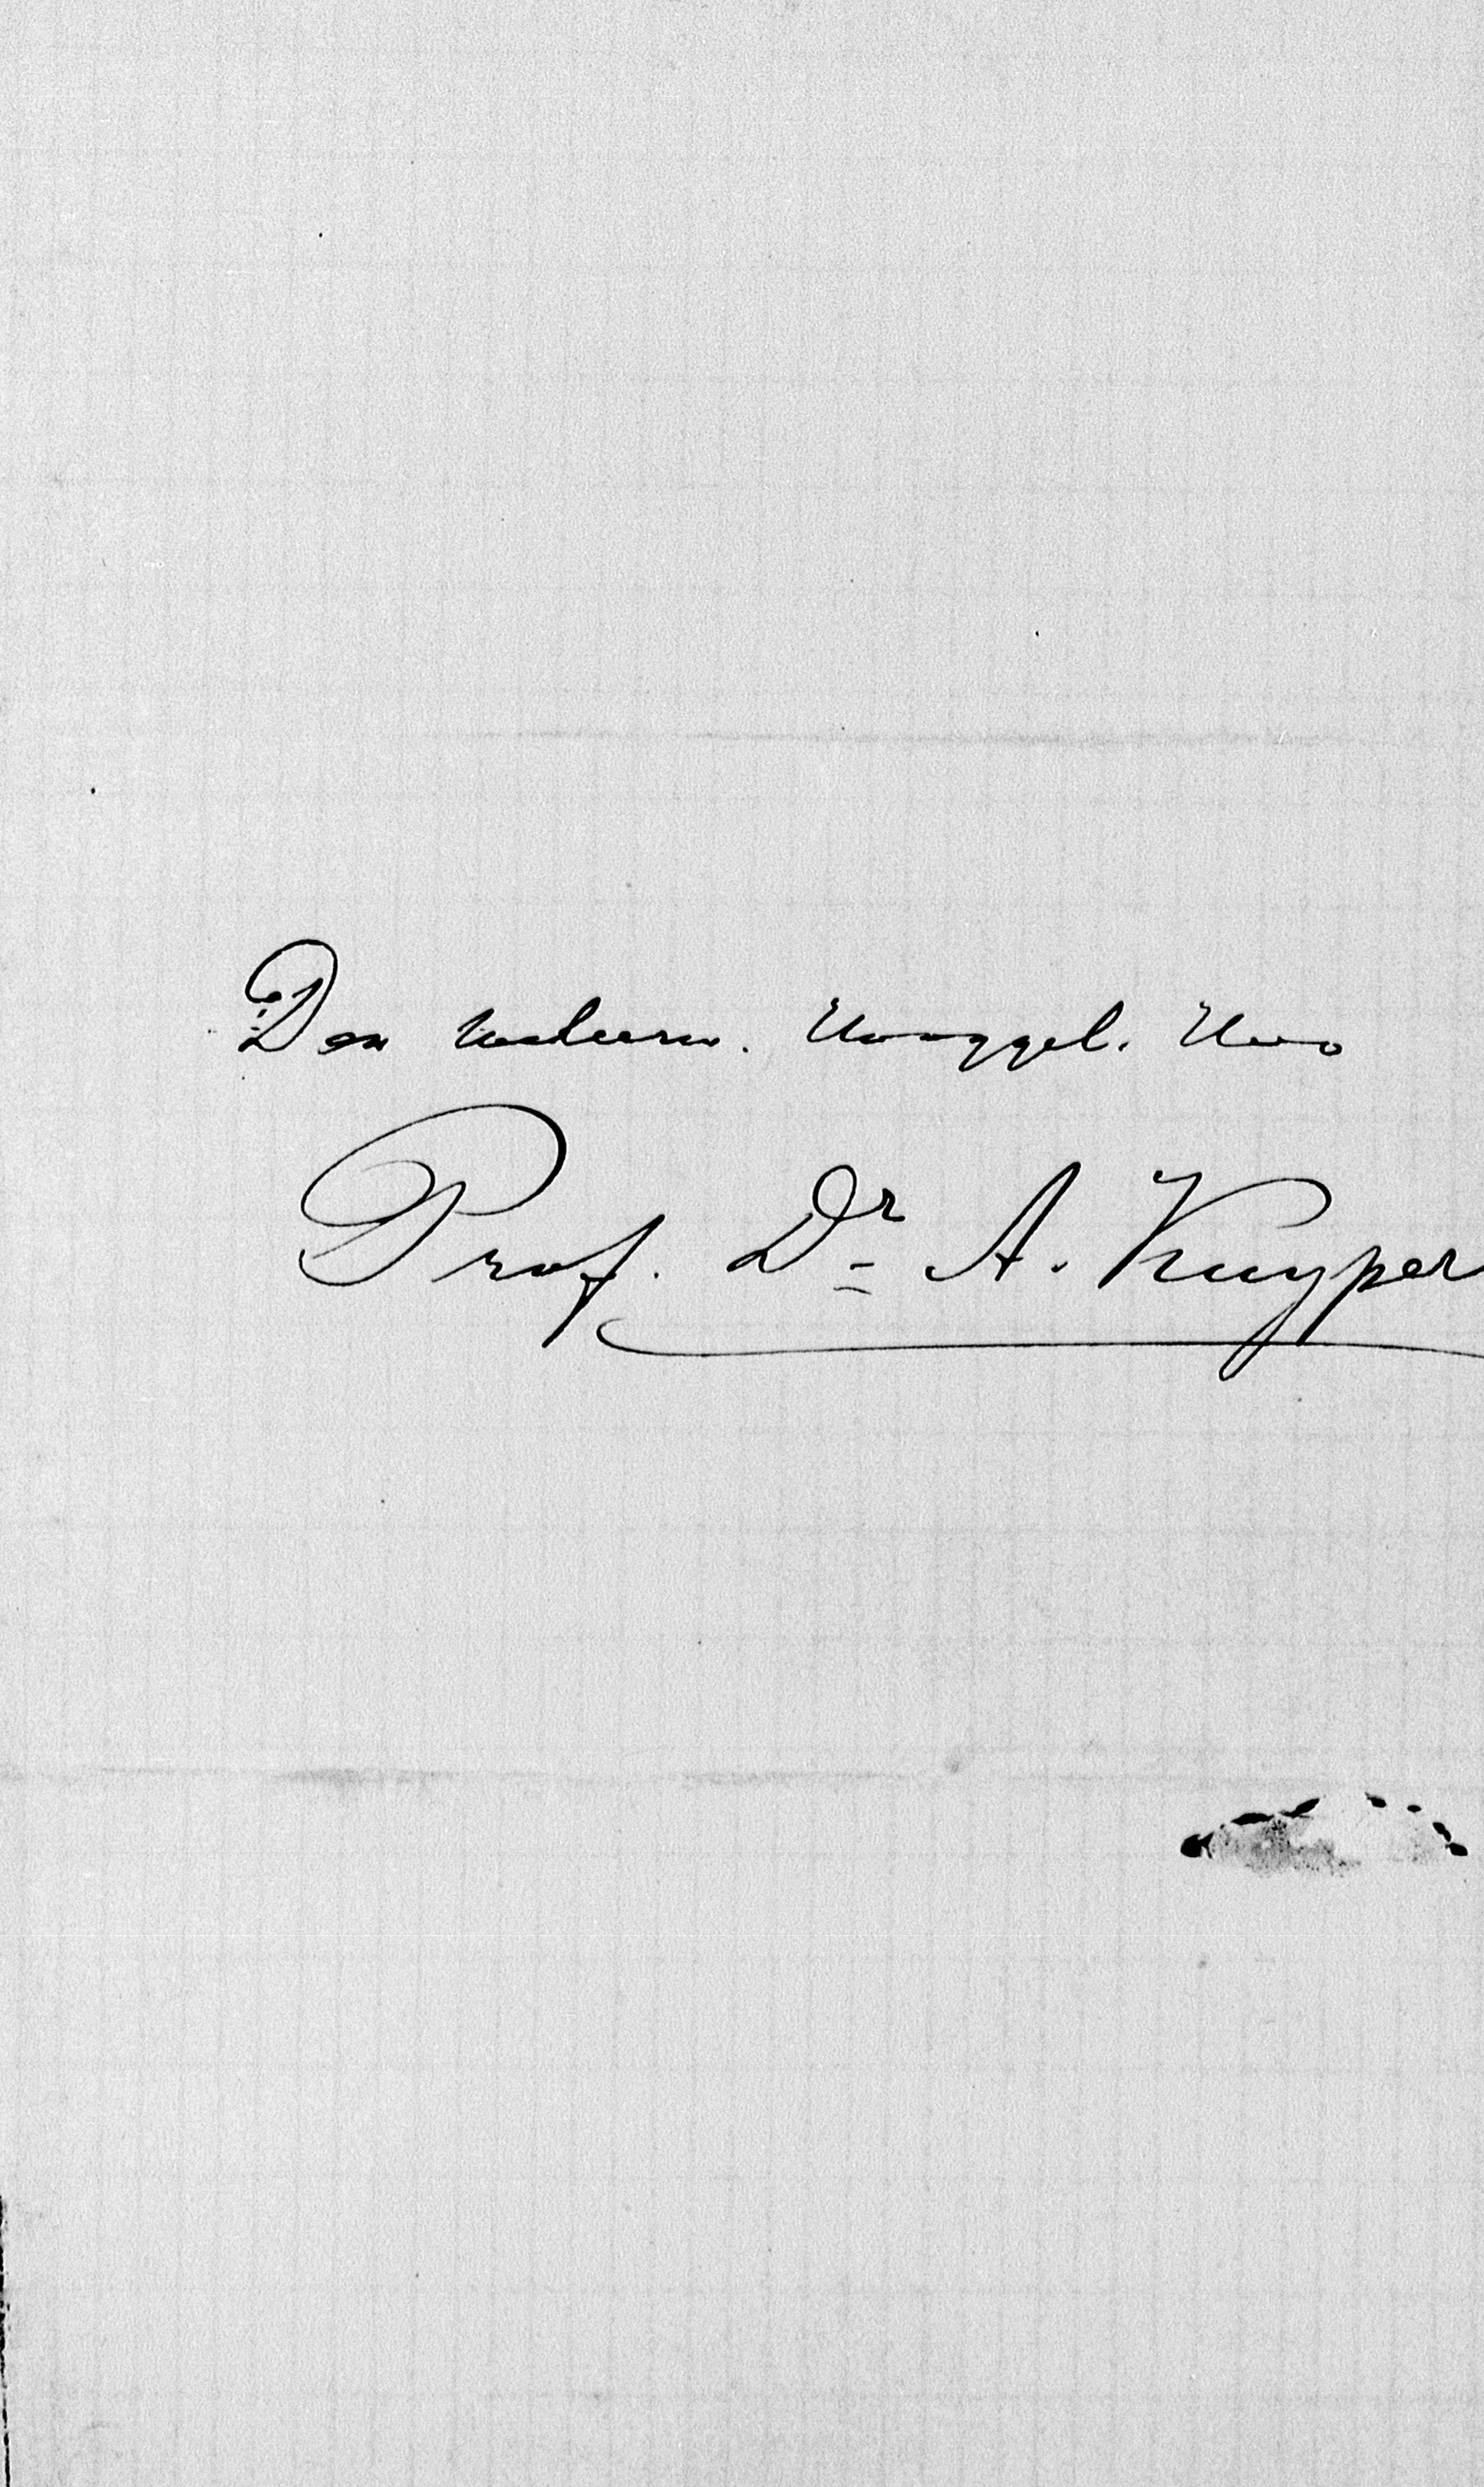 Den weleerw. Hooggel. Heer
Prof. Dr. A. Kuyper